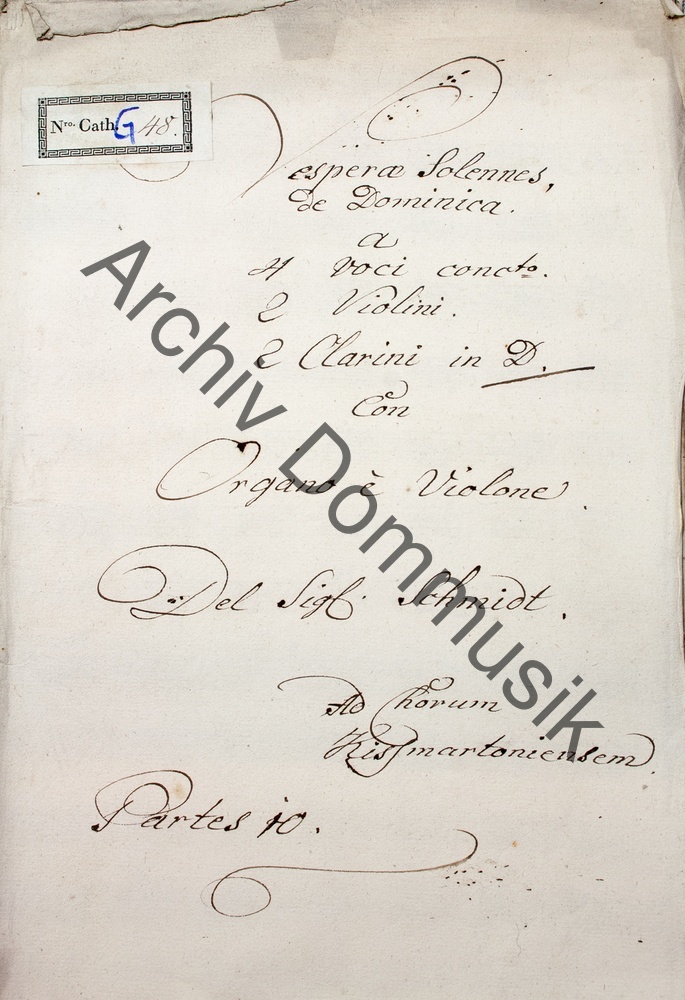 Nro. Cath. G 48.
Vesperæ Solennes,
de Dominica.
a
4 voci conc:to.
2 Violini.
2 Clarini in D.
Con
Organo è Violone.
Del Sigl. Schmidt.
Ad Chorum
Kissmartoniensem.
Partes 10.
Archiv Dommusik